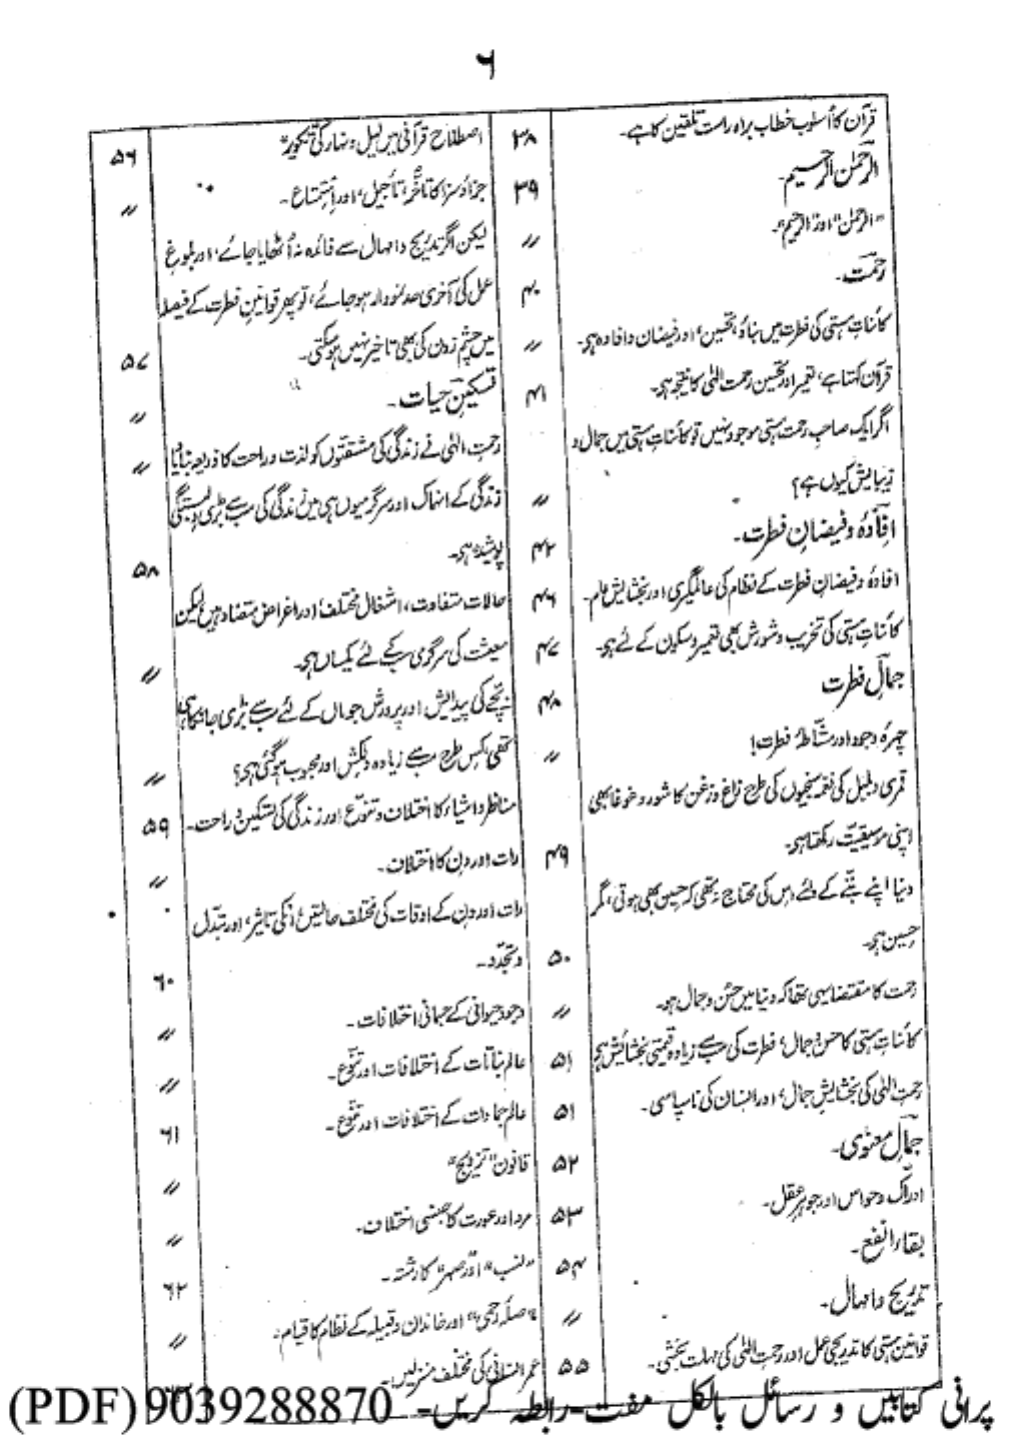 ۶
قرآن کا اُسلوب خطاب براہ راست تلقین کا ہے۔ ۳۸
الرحمٰن الرحیم۔ ۳۹
"الرحمٰن" اور "الرحیم"۔ 〃
رحمت۔ ۴۰
کائناتِ ہستی کی فطرت میں بناؤ، تحسین، اور فیضان و افادہ ہی۔ 〃
قرآن کہتا ہے، تعمیر اور تحسین رحمت الٰہی کا نتیجہ ہی۔ ۴۱
اگر ایک صاحبِ رحمت ہستی موجود نہیں تو کائناتِ ہستی میں جمال و
زیبایش کیوں ہے؟ 〃
افادۂ و فیضانِ فطرت۔ ۴۲
افادۂ و فیضانِ فطرت کے نظام کی عالمگیری اور بخشایشِ عام۔ ۴۶
کائناتِ ہستی کی تخریب و شورش بھی تعمیر و سکون کے لئے ہی۔ ۴۷
جمالِ فطرت ۴۸
چہرۂ وجود اور مشاطۂ فطرت! 〃
قمری و بلبل کی نغمہ سنجیوں کی طرح زاغ و زغن کا شور و غوغا بھی
اپنی موسیقیت رکھتا ہی۔ ۴۹
دنیا اپنے بننے کے لئے اس کی محتاج نہ تھی کہ حسین بھی ہوتی، مگر
حسین ہی۔ ۵۰
رحمت کا مقتضا یہی تھا کہ دنیا میں حسن و جمال ہو۔ 〃
کائناتِ ہستی کا حسن و جمال، فطرت کی سب سے زیادہ قیمتی بخشائیش ہی ۵۱
رحمتِ الٰہی کی بخشایشِ جمال، اور انسان کی ناسپاسی۔ ۵۱
جمالِ معنوی۔ ۵۲
ادراک و حواس اور جوہرِ عقل۔ ۵۳
بقاءِ انفع۔ ۵۴
تدریج و امہال۔ 〃
قوانینِ ہستی کا تدریجی عمل اور رحمتِ الٰہی کی مہلت بخشی۔ ۵۵
اصطلاح قرآنی میں لیل و نہار کی "تکویر" ۵۶
جزاؤ سزا کا تاخر، تاجیل، اور تمتاع۔ 〃
لیکن اگر تدریج و امہال سے فائدہ نہ اُٹھایا جائے، اور بلوغِ
عمل کی آخری حد نمودار ہو جائے، تو پھر قوانینِ فطرت کے فیصلہ
میں چشم زدن کی بھی تاخیر نہیں ہو سکتی۔ ۵۷
تسکینِ حیات۔ 〃
رحمتِ الٰہی نے زندگی کی مشقتوں کو لذت و راحت کا ذریعہ بنایا 〃
زندگی کے انہماک اور سرگرمیوں ہی میں زندگی کی سب سے بڑی دلبستگی
پوشیدہ ہی۔ ۵۸
حالات متفاوت، اشغال مختلف، اور اغراض متضاد ہیں لیکن
معیشت کی سرگرمی سب کے لئے یکساں ہی۔ 〃
بچے کی پیدایش اور پرورش جو ماں کے لئے سب سے بڑی جانکاہی
تھی کس طرح سب سے زیادہ دلکش اور محبوب ہو گئی ہی؟ 〃
مناظر و اشیاء کا اختلاف و تنوّع اور زندگی کی تسکین و راحت۔ ۵۹
رات اور دن کا اختلاف۔ 〃
رات اور دن کے اوقات کی مختلف حالتیں، اُنکی تاثیر، اور تبدّل
و تجدّد۔ ۶۰
وجود حیوانی کے جسمانی اختلافات۔ 〃
عالمِ نباتات کے اختلافات اور تنوّع۔ 〃
عالمِ جمادات کے اختلافات اور تنوّع۔ ۶۱
قانون "تزویج" 〃
مرد اور عورت کا جنسی اختلاف۔ 〃
"نسب" اور "صہر" کا رشتہ۔ ۶۲
"صلہ رحمی" اور خاندان و قبیلہ کے نظام کا قیام۔ 〃
عمر انسانی کی مختلف منزلیں۔
پرانی کتابیں و رسائل بالکل مفت۔ رابطہ کریں۔ 9039288870 (PDF)